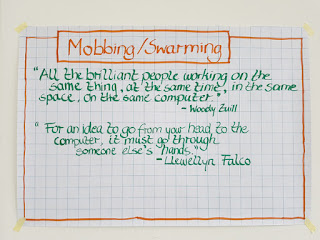 Mobbing/Swarming
"All the brilliant people working on the
same thing, at the same time, in the same
space, on the same computer."
- Woody Zuill
"For an idea to go from your head to the
computer, it must go through
someone else's hands."
- Llewellyn Falco